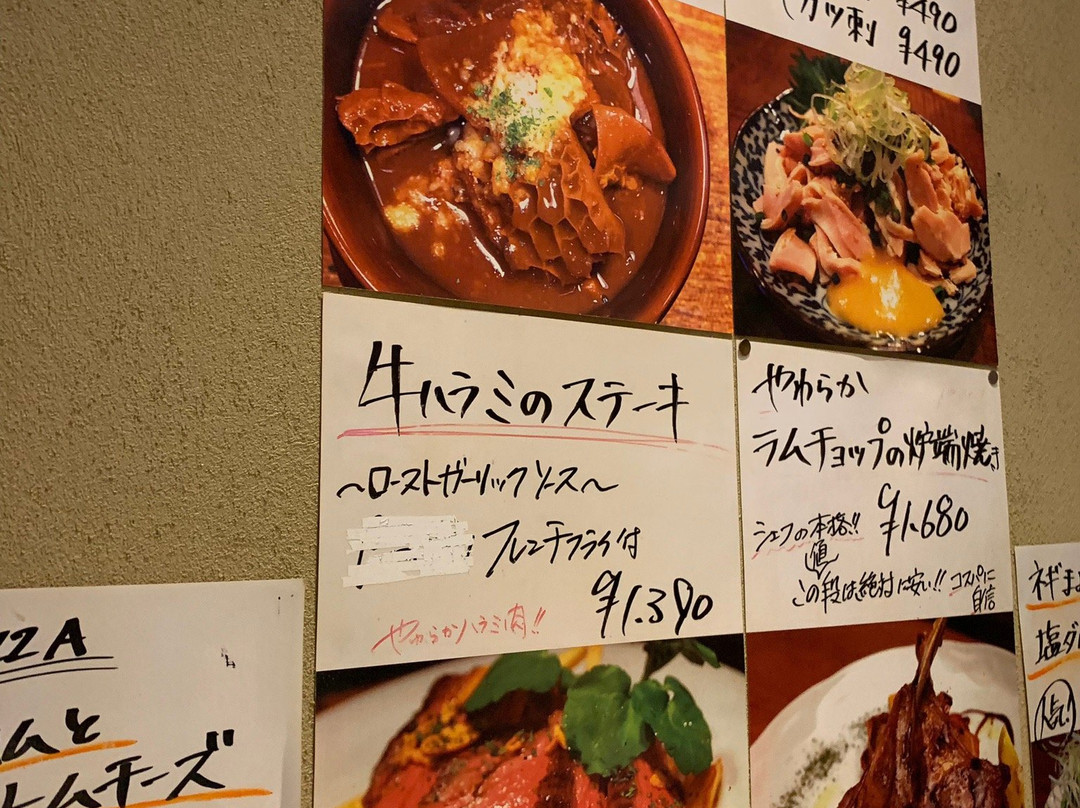 ¥490
ガツ刺 ¥490
牛ハラミのステーキ
～ローストガーリックソース～
フレンチフライ付
¥1.390
やわらかハラミ肉!!
やわらか
ラムチョップの炉端焼き
¥1.680
シェフの本格!!
この値段は絶対に安い!! コスパに
自信
ZZA
ムと
ムチーズ
ネギま
塩ダ